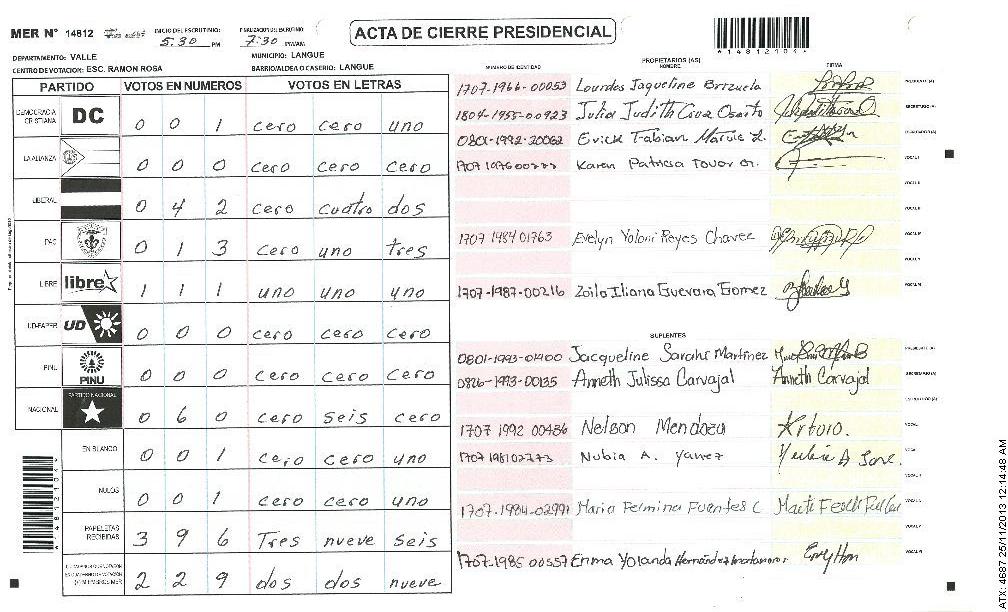 MER N° 14812
INICIO DEL ESCRUTINIO: 5:30 PM
FINALIZACION DE ESCRUTINIO: 7:30 PM/AM
ACTA DE CIERRE PRESIDENCIAL
*14812104*
DEPARTAMENTO: VALLE
MUNICIPIO: LANGUE
CENTRO DE VOTACION: ESC. RAMON ROSA
BARRIO/ALDEA O CASERIO: LANGUE
PARTIDO VOTOS EN NUMEROS VOTOS EN LETRAS
DEMOCRACIA CRISTIANA DC 0 0 1 cero cero uno
LA ALIANZA 0 0 0 cero cero cero
LIBERAL 0 4 2 cero cuatro dos
PAC 0 1 3 cero uno tres
LIBRE libre 1 1 1 uno uno uno
UD-FAPER UD 0 0 0 cero cero cero
PINU PINU 0 0 0 cero cero cero
NACIONAL PARTIDO NACIONAL 0 6 0 cero seis cero
EN BLANCO 0 0 1 cero cero uno
NULOS 0 0 1 cero cero uno
PAPELETAS RECIBIDAS 3 9 6 Tres nueve seis
2 2 9 dos dos nueve
NUMERO DE IDENTIDAD PROPIETARIOS (AS) NOMBRE FIRMA
1707-1966-00053 Lourdes Jaqueline Brizuela PRESIDENTE(A)
1804-1955-00923 Julia Judith Cruz SECRETARIO(A)
0801-1992-20062 Erick Fabian ESCRUTADOR(A)
Karen Patricia Tovar VOCAL I
VOCAL II
1707 1984 01763 Evelyn Yolani Reyes Chavez
1707-1987-00216 Zoila Iliana Guevara Gomez
SUPLENTES
0801-1993-01400 Jacqueline Sarahi Martinez PRESIDENTE(A)
0826-1993-00135 Anneth Julissa Carvajal Anneth Carvajal SECRETARIO(A)
1707 1992 00436 Nelson Mendoza Arturo.
Nubia A. Yanez
1707-1984-02991 Maria Fermina Fuentes C
1707-1985 00557 Enma Yolanda Hernández
ATX: 4687 25/11/2013 12:14:48 AM